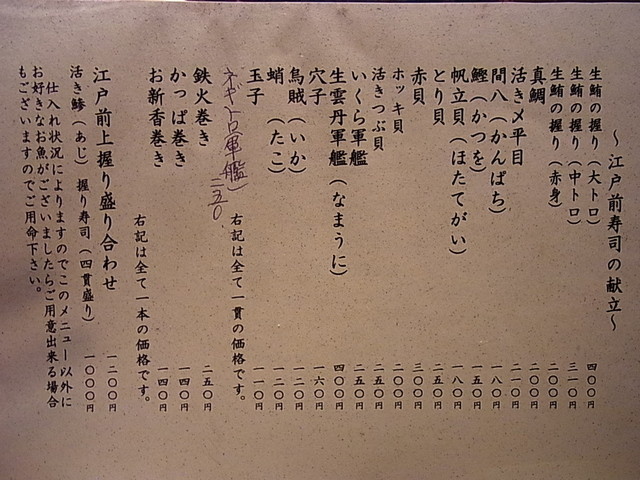 ～江戸前寿司の献立～
生鮪の握り（大トロ） 四〇〇円
生鮪の握り（中トロ） 三一〇円
生鮪の握り（赤身） 二〇〇円
真鯛 二〇〇円
活き〆平目 二一〇円
間八（かんぱち） 一八〇円
鰹（かつを） 一五〇円
帆立貝（ほたてがい） 一八〇円
とり貝 二五〇円
赤貝 三〇〇円
ホッキ貝 二〇〇円
活きつぶ貝 二五〇円
いくら軍艦 二五〇円
生雲丹軍艦（なまうに） 四〇〇円
穴子 一六〇円
烏賊（いか） 一二〇円
蛸（たこ） 一二〇円
玉子 一一〇円
右記は全て一貫の価格です。
ネギトロ軍艦） 二五〇
鉄火巻き 二五〇円
かっぱ巻き 一四〇円
お新香巻き 一四〇円
右記は全て一本の価格です。
江戸前上握り盛り合わせ 一二〇〇円
活き鯵（あじ）握り寿司（四貫盛り） 一〇〇〇円
仕入れ状況によりますのでこのメニュー以外に
お好きなお魚がございましたらご用意出来る場合
もございますのでご用命下さい。